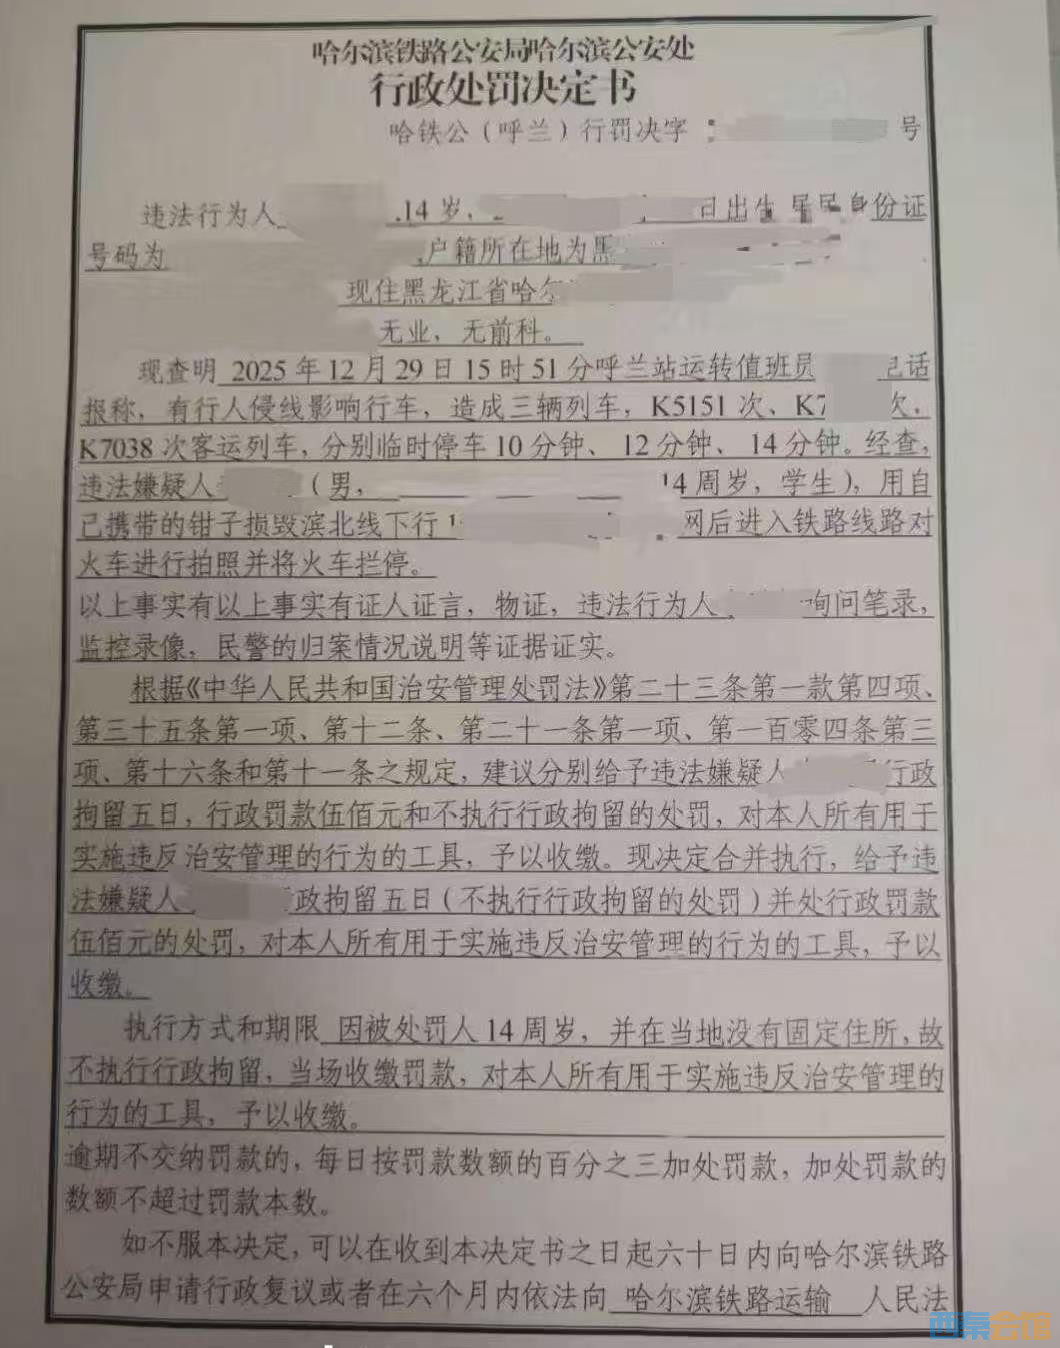 哈尔滨铁路公安局哈尔滨公安处
行政处罚决定书
哈铁公（呼兰）行罚决字 号
违法行为人 14岁， 日出生 居民身份证
号码为 ,户籍所在地为黑
现住黑龙江省哈尔
无业，无前科。
现查明 2025年12月29日15时51分呼兰站运转值班员 话
报称，有行人侵线影响行车，造成三辆列车，K5151次、K7 次，
K7038次客运列车，分别临时停车10分钟、12分钟、14分钟。经查，
违法嫌疑人 （男， 14周岁，学生），用自
己携带的钳子损毁滨北线下行1 网后进入铁路线路对
火车进行拍照并将火车拦停。
以上事实有以上事实有证人证言，物证，违法行为人 询问笔录，
监控录像，民警的归案情况说明等证据证实。
根据《中华人民共和国治安管理处罚法》第二十三条第一款第四项、
第三十五条第一项、第十二条、第二十一条第一项、第一百零四条第三
项、第十六条和第十一条之规定，建议分别给予违法嫌疑人 行政
拘留五日，行政罚款伍佰元和不执行行政拘留的处罚，对本人所有用于
实施违反治安管理的行为的工具，予以收缴。现决定合并执行，给予违
法嫌疑人 政拘留五日（不执行行政拘留的处罚）并处行政罚款
伍佰元的处罚，对本人所有用于实施违反治安管理的行为的工具，予以
收缴。
执行方式和期限 因被处罚人14周岁，并在当地没有固定住所，故
不执行行政拘留，当场收缴罚款，对本人所有用于实施违反治安管理的
行为的工具，予以收缴。
逾期不交纳罚款的，每日按罚款数额的百分之三加处罚款，加处罚款的
数额不超过罚款本数。
如不服本决定，可以在收到本决定书之日起六十日内向哈尔滨铁路
公安局申请行政复议或者在六个月内依法向 哈尔滨铁路运输 人民法
西秦会馆